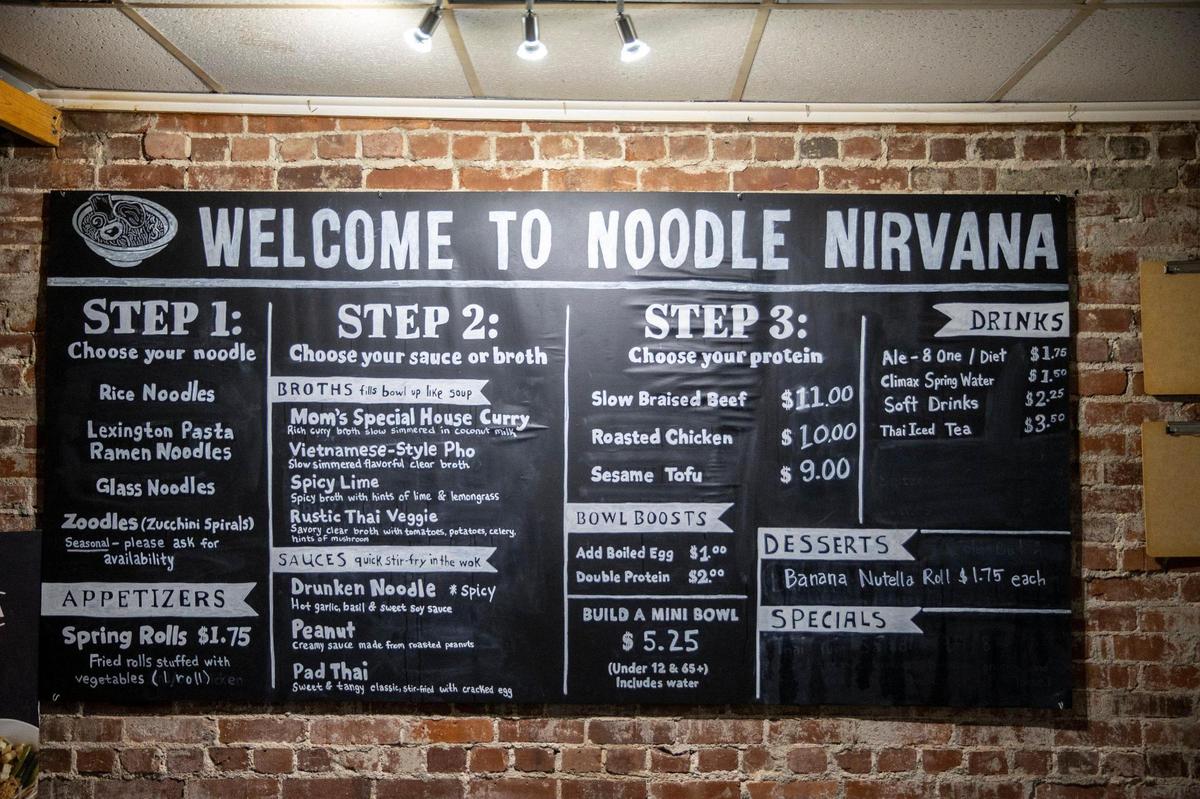 WELCOME TO NOODLE NIRVANA
STEP 1:
Choose your noodle
Rice Noodles
Lexington Pasta
Ramen Noodles
Glass Noodles
Zoodles (Zucchini Spirals)
Seasonal - please ask for
availability
APPETIZERS
Spring Rolls $1.75
Fried rolls stuffed with
vegetables (1 roll)
STEP 2:
Choose your sauce or broth
BROTHS fills bowl up like soup
Mom's Special House Curry
Rich curry broth slow simmered in coconut milk
Vietnamese-Style Pho
Slow simmered flavorful clear broth
Spicy Lime
Spicy broth with hints of lime & lemongrass
Rustic Thai Veggie
Savory clear broth with tomatoes, potatoes, celery,
hints of mushroom
SAUCES quick stir-fry in the wok
Drunken Noodle *Spicy
Hot garlic, basil & sweet soy sauce
Peanut
Creamy sauce made from roasted peanuts
Pad Thai
Sweet & tangy classic, stir-fried with cracked egg
STEP 3:
Choose your protein
Slow Braised Beef $11.00
Roasted Chicken $10.00
Sesame Tofu $9.00
BOWL BOOSTS
Add Boiled Egg $1.00
Double Protein $2.00
BUILD A MINI BOWL
$5.25
(Under 12 & 65+)
Includes water
DRINKS
Ale-8 One / Diet $1.75
Climax Spring Water $1.50
Soft Drinks $2.25
Thai Iced Tea $3.50
DESSERTS
Banana Nutella Roll $1.75 each
SPECIALS